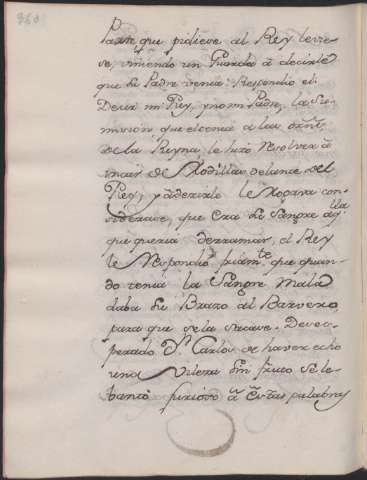 para que pidiese al Rey le vie
se, viniendo un Guarda à decirle
que su Padre venia: Respondio el:
Decir mi Rey, y no mi Padre, la Su-
mision que tenia a las
de la Reyna, le hizo resolver à
incar de Rodillas delante del
Rey, y à decirle le Rogava con-
siderase, que era su Sangre aq.lla
que queria derramar, el Rey
le Respondio friam.te que quan-
do tenia la Sangre mala
daba su Brazo al Barvero
para que se la sacase. Deses-
perado D.n Carlos de haver echo
una Vileza sin fruto se le-
bantò furioso à estas palabras